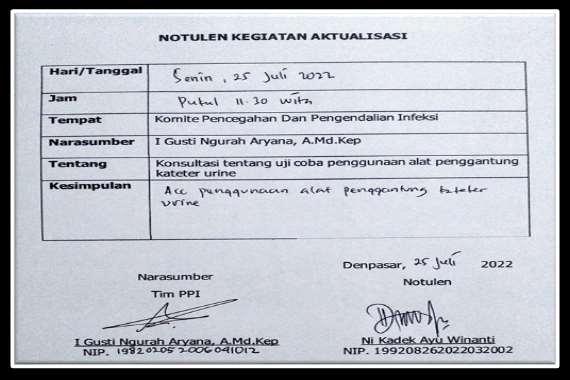 NOTULEN KEGIATAN AKTUALISASI
Hari/Tanggal Senin, 25 Juli 2022
Jam Pukul 11.30 wita
Tempat Komite Pencegahan Dan Pengendalian Infeksi
Narasumber I Gusti Ngurah Aryana, A.Md.Kep
Tentang Konsultasi tentang uji coba penggunaan alat penggantung
kateter urine
Kesimpulan Acc penggunaan alat penggantung kateter
urine
Denpasar, 25 Juli 2022
Narasumber Notulen
Tim PPI
I Gusti Ngurah Aryana, A.Md.Kep Ni Kadek Ayu Winanti
NIP. 19820205 2006041012 NIP. 199208262022032002